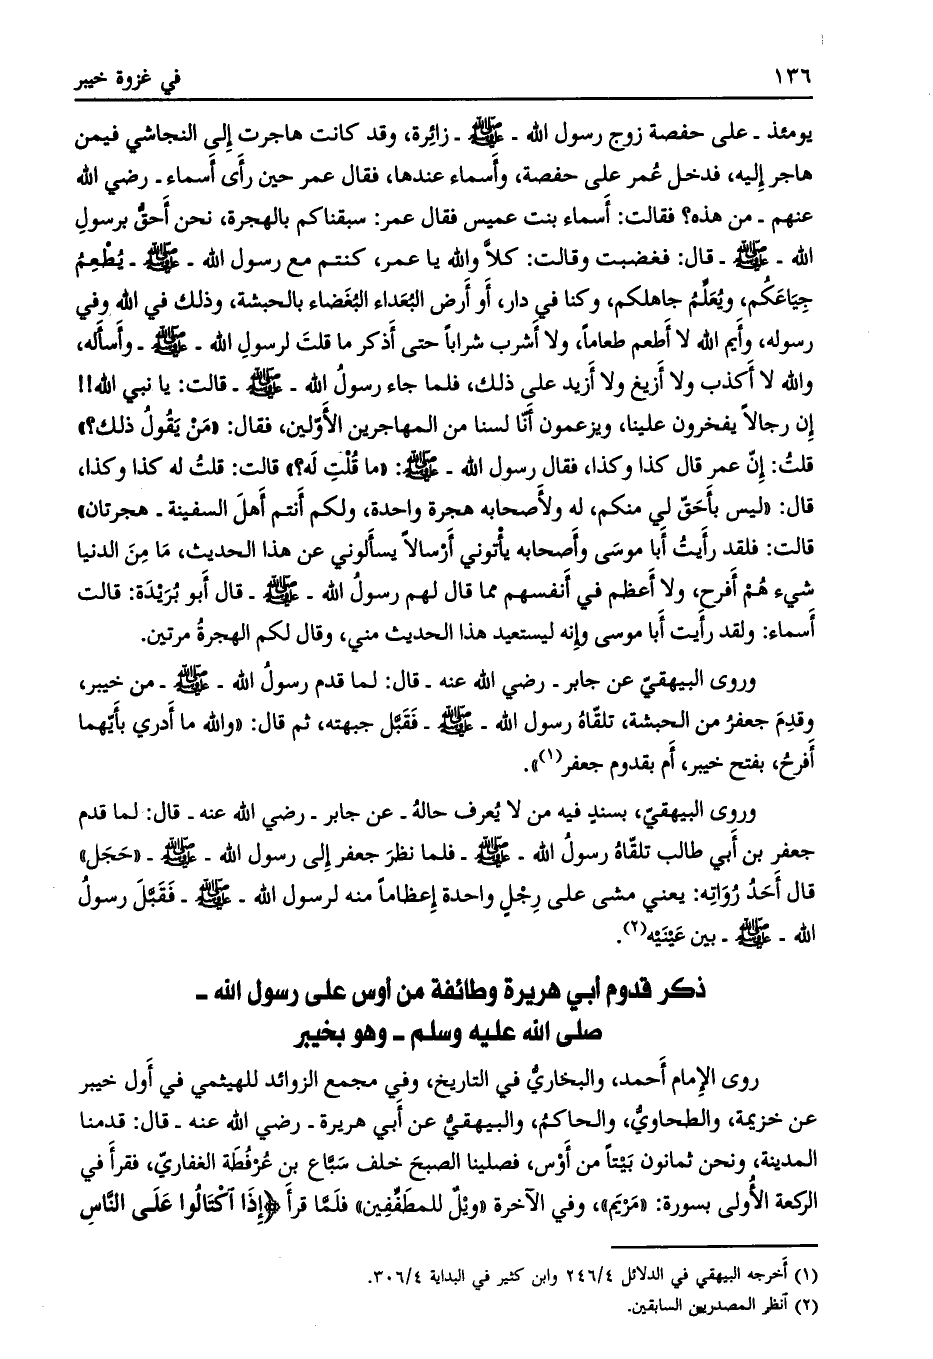 ١٣٦ في غزوة خيبر
يومئذ ـ على حفصة زوج رسول الله ـ ﷺ ـ زائِرة، وقد كانت هاجرت إِلى النجاشي فيمن
هاجر إِليه، فدخل عُمر على حفصة، وأَسماء عندها، فقال عمر حين رأَى أَسماء ـ رضي الله
عنهم ـ من هذه؟ فقالت: أَسماء بنت عميس فقال عمر: سبقناكم بالهجرة، نحن أَحقُّ برسولِ
الله ـ ﷺ ـ قال: فغضبت وقالت: كلاَّ والله يا عمر، كنتم مع رسول الله ـ ﷺ ـ يُطْعِمُ
جِيَاعَكُم، ويُعَلِّمُ جاهلكم، وكنا في دار، أَو أَرض البُعَداء البُغَضاء بالحبشة، وذلك في الله وفي
رسوله، وأَيم الله لا أَطعم طعاماً، ولا أَشرب شراباً حتى أَذكر ما قلتَ لرسولِ الله ـ ﷺ ـ وأَسأَله،
والله لا أَكذب ولا أَزيغ ولا أَزيد على ذلك، فلما جاء رسولُ الله ـ ﷺ ـ قالت: يا نبي الله!!
إِن رجالاً يفخرون علينا، ويزعمون أَنّا لسنا من المهاجرين الأَوّلين، فقال: «مَنْ يَقُولُ ذلك؟»
قلتُ: إِنّ عمر قال كذا وكذا، فقال رسول الله ـ ﷺ: «ما قُلْتِ لَه؟» قالت: قلتُ له كذا وكذا،
قال: «ليس بأَحَقّ لي منكم، له ولأَصحابه هجرة واحدة، ولكم أَنتم أَهلَ السفينة ـ هجرتان»
قالت: فلقد رأَيتُ أَبا موسَى وأَصحابه يأْتوني أَرْسالاً يسأَلوني عن هذا الحديث، مَا مِنَ الدنيا
شيء هُمْ أَفرح، ولا أَعظم في أَنفسهم مما قال لهم رسولُ الله ـ ﷺ ـ قال أَبو بُرَيْدَة: قالت
أَسماء: ولقد رأَيت أَبا موسى وإِنه ليستعيد هذا الحديث مني، وقال لكم الهجرةُ مرتين.
وروى البيهقيّ عن جابر ـ رضي الله عنه ـ قال: لما قدم رسولُ الله ـ ﷺ ـ من خيبر،
وقدِمَ جعفرُ من الحبشة، تلقّاهُ رسول الله ـ ﷺ ـ فَقَبَّل جبهته، ثم قال: «والله ما أَدري بأَيّهما
أَفرحُ، بفتح خيبر، أَم بقدوم جعفر(١)».
وروى البيهقيّ، بسندٍ فيه من لا يُعرف حالهُ ـ عن جابر ـ رضي الله عنه ـ قال: لما قدم
جعفر بن أَبي طالب تلقّاهُ رسولُ الله ـ ﷺ ـ فلما نظرَ جعفر إِلى رسول الله ـ ﷺ ـ «حَجَل»
قال أَحَدُ رُوَاتِه: يعني مشى على رِجْلٍ واحدة إِعظاماً منه لرسول الله ـ ﷺ ـ فَقَبَّلَ رسولُ
الله ـ ﷺ ـ بين عَيْنَيْه(٢).
ذكر قدوم أبي هريرة وطائفة من أوس على رسول الله ـ
صلى الله عليه وسلم ـ وهو بخيبر
روى الإِمام أَحمد، والبخاريُّ في التاريخ، وفي مجمع الزوائد للهيثمي في أَول خيبر
عن خزيمة، والطحاويُّ، والحاكمُ، والبيهقيُّ عن أَبي هريرة ـ رضي الله عنه ـ قال: قدمنا
المدينة، ونحن ثمانون بَيْتاً من أَوْس، فصلينا الصبحَ خلف سَبَّاع بن عُرْفُطَة الغفاريّ، فقرأَ في
الركعة الأُولى بسورة: «مَرْيَم»، وفي الآخرة «ويْلٌ للمطَفِّفِين» فلَمَّا قرأَ ﴿إِذَا ٱكْتَالُوا عَلَى النَّاسِ
(١) أَخرجه البيهقي في الدلائل ٢٤٦/٤ وابن كثير في البداية ٣٠٦/٤.
(٢) أنظر المصدرين السابقين.